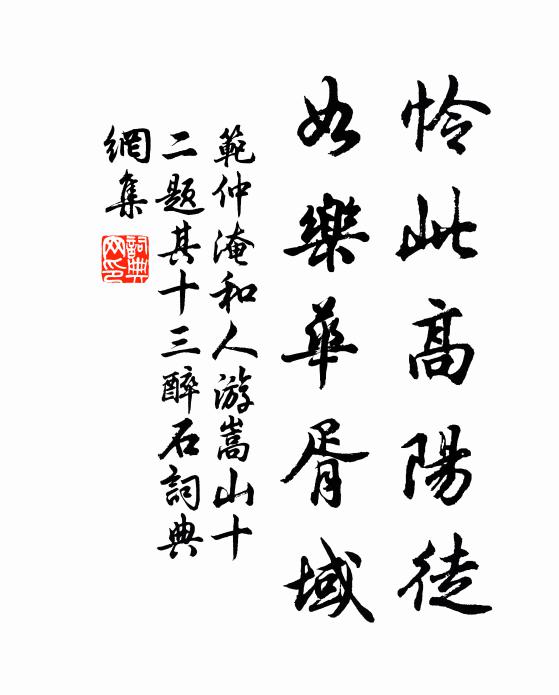 怜此高陽徒
如樂華胥域
範仲淹和人游嵩山十
二题其十三醉石詞典
網集
詞典
网印